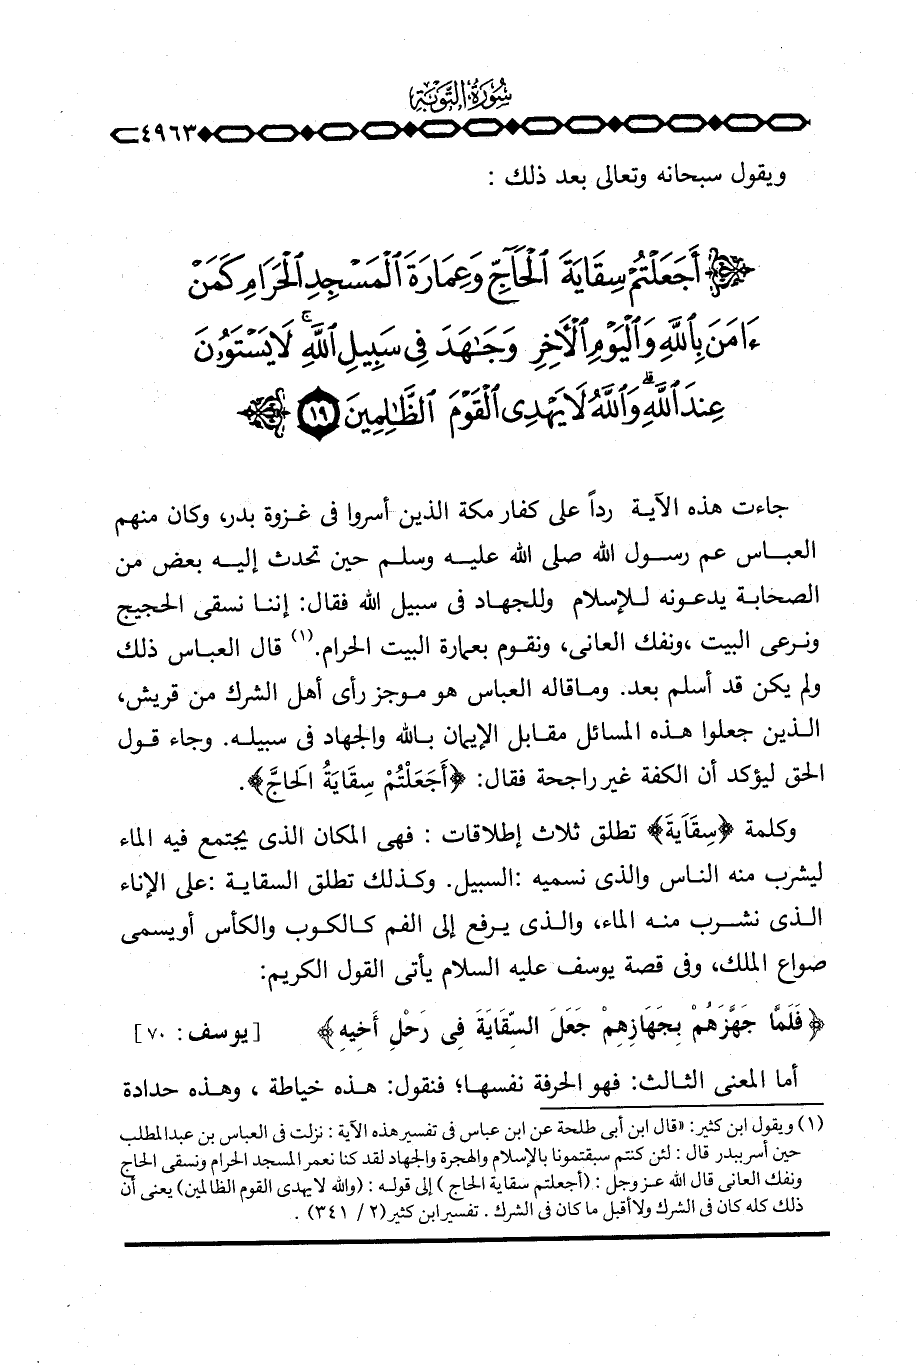 سُورَةُ التَّوْبَةِ
٤٩٦٣
ويقول سبحانه وتعالى بعد ذلك :
أَجَعَلْتُمْ سِقَايَةَ ٱلْحَآجِّ وَعِمَارَةَ ٱلْمَسْجِدِ ٱلْحَرَامِ كَمَنْ
ءَامَنَ بِٱللَّهِ وَٱلْيَوْمِ ٱلْأَخِرِ وَجَٰهَدَ فِى سَبِيلِ ٱللَّهِ ۚ لَا يَسْتَوُۥنَ
عِندَ ٱللَّهِ ۗ وَٱللَّهُ لَا يَهْدِى ٱلْقَوْمَ ٱلظَّٰلِمِينَ ١٩
جاءت هذه الآية رداً على كفار مكة الذين أسروا فى غزوة بدر، وكان منهم
العباس عم رسول الله صلى الله عليه وسلم حين تحدث إليه بعض من
الصحابة يدعونه للإسلام وللجهاد فى سبيل الله فقال: إننا نسقى الحجيج
ونرعى البيت ،ونفك العانى، ونقوم بعمارة البيت الحرام.(١) قال العباس ذلك
ولم يكن قد أسلم بعد. وماقاله العباس هو موجز رأى أهل الشرك من قريش،
الذين جعلوا هذه المسائل مقابل الإيمان بالله والجهاد فى سبيله. وجاء قول
الحق ليؤكد أن الكفة غير راجحة فقال: ﴿أَجَعَلْتُمْ سِقَايَةُ الحَاجَّ﴾.
وكلمة ﴿سِقَايَةَ﴾ تطلق ثلاث إطلاقات : فهى المكان الذى يجتمع فيه الماء
ليشرب منه الناس والذى نسميه :السبيل. وكذلك تطلق السقاية :على الإناء
الذى نشرب منه الماء، والذى يرفع إلى الفم كالكوب والكأس أويسمى
صواع الملك، وفى قصة يوسف عليه السلام يأتى القول الكريم:
﴿فَلَمَّا جَهَّزَهُمْ بِجَهَازِهِمْ جَعَلَ السِّقَايَةَ فِى رَحْلِ أَخِيهِ﴾ [يوسف: ٧٠]
أما المعنى الثالث: فهو الحرفة نفسها؛ فنقول: هذه خياطة ، وهذه حدادة
(١) ويقول ابن كثير: «قال ابن أبى طلحة عن ابن عباس فى تفسير هذه الآية : نزلت فى العباس بن عبدالمطلب
حين أسرببدر قال : لئن كنتم سبقتمونا بالإسلام والهجرة والجهاد لقد كنا نعمر المسجد الحرام ونسقى الحاج
ونفك العانى قال الله عز وجل : (أجعلتم سقاية الحاج ) إلى قوله : (والله لا يهدى القوم الظالمين) يعنى أن
ذلك كله كان فى الشرك ولا أقبل ما كان فى الشرك . تفسير ابن كثير (٢ / ٣٤١) .